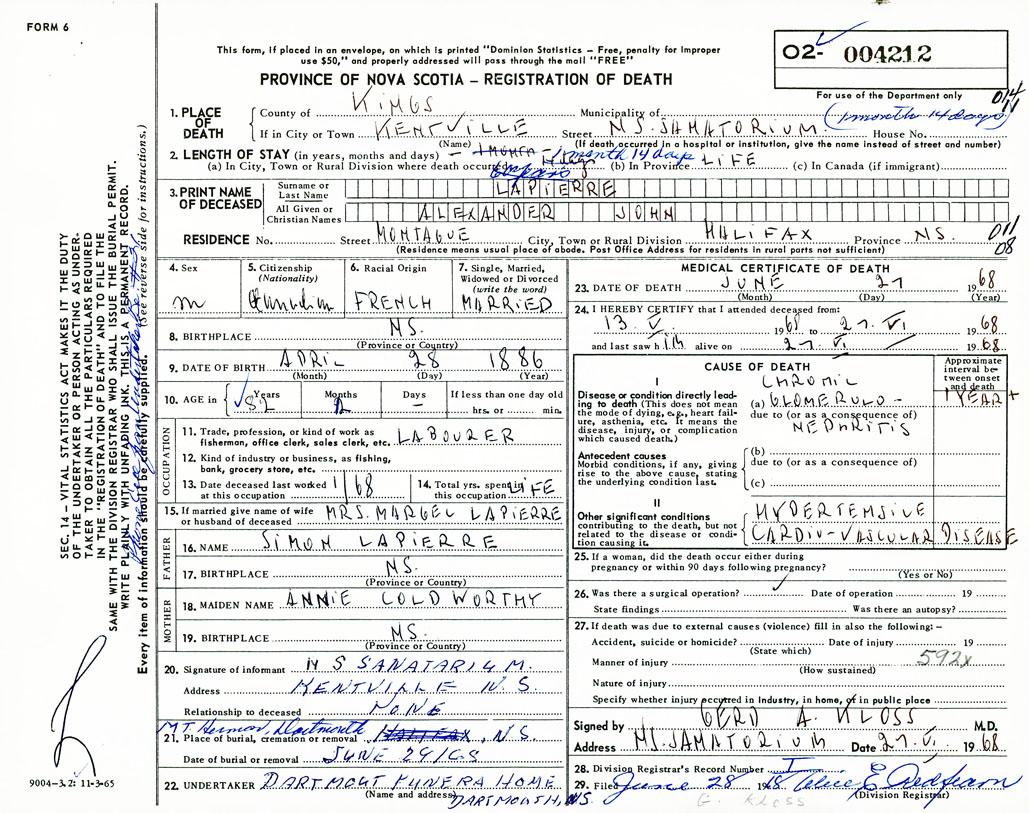 FORM 6
This form, if placed in an envelope, on which is printed "Dominion Statistics – Free, penalty for improper
use $50," and properly addressed will pass through the mail "FREE"
PROVINCE OF NOVA SCOTIA – REGISTRATION OF DEATH
02- 004212
For use of the Department only
1. PLACE OF DEATH
County of KINGS Municipality of
(1 month 14 days)
If in City or Town KENTVILLE Street N.S. SANATORIUM House No.
(Name) (If death occurred in a hospital or institution, give the name instead of street and number)
2. LENGTH OF STAY (in years, months and days) – 1 month 14 days
(a) In City, Town or Rural Division where death occurred (b) In Province LIFE (c) In Canada (if immigrant)
3. PRINT NAME OF DECEASED
Surname or Last Name LAPIERRE
All Given or Christian Names ALEXANDER JOHN
RESIDENCE No. Street MONTAGUE City, Town or Rural Division HALIFAX Province NS. 011 08
(Residence means usual place of abode. Post Office Address for residents in rural parts not sufficient)
4. Sex
m
5. Citizenship (Nationality)
Canadian
6. Racial Origin
FRENCH
7. Single, Married, Widowed or Divorced (write the word)
MARRIED
8. BIRTHPLACE NS.
(Province or Country)
9. DATE OF BIRTH APRIL 28 1886
(Month) (Day) (Year)
10. AGE in Years 82 Months 2 Days – If less than one day old
hrs. or min.
OCCUPATION
11. Trade, profession, or kind of work as
fisherman, office clerk, sales clerk, etc. LABOURER
12. Kind of industry or business, as fishing,
bank, grocery store, etc.
13. Date deceased last worked at this occupation 1/68
14. Total yrs. spent in this occupation LIFE
15. If married give name of wife
or husband of deceased MRS. MARGEL LAPIERRE
FATHER
16. NAME SIMON LAPIERRE
17. BIRTHPLACE NS.
(Province or Country)
MOTHER
18. MAIDEN NAME ANNIE COLDWORTHY
19. BIRTHPLACE NS.
(Province or Country)
20. Signature of informant N S SANATARIUM.
Address KENTVILLE N.S.
Relationship to deceased NONE
MT. Hermon, Dartmouth
21. Place of burial, cremation or removal HALIFAX, N.S.
Date of burial or removal JUNE 29/68
22. UNDERTAKER DARTMOUT FUNERA HOME
(Name and address) DARTMOUTH, NS.
MEDICAL CERTIFICATE OF DEATH
23. DATE OF DEATH JUNE 27 1968
(Month) (Day) (Year)
24. I HEREBY CERTIFY that I attended deceased from:
13. V. 1968 to 27. VI 1968
and last saw him alive on 27. VI 1968
CAUSE OF DEATH
Approximate interval between onset and death
I
Disease or condition directly leading to death (This does not mean the mode of dying, e.g., heart failure, asthenia, etc. It means the disease, injury, or complication which caused death.)
CHRONIC
(a) GLOMERULO- 1 YEAR +
due to (or as a consequence of)
NEPHRITIS
Antecedent causes
Morbid conditions, if any, giving rise to the above cause, stating the underlying condition last.
(b)
due to (or as a consequence of)
(c)
II
Other significant conditions
contributing to the death, but not related to the disease or condition causing it.
HYPERTENSIVE
CARDIO-VASCULAR DISEASE
25. If a woman, did the death occur either during
pregnancy or within 90 days following pregnancy?
(Yes or No)
26. Was there a surgical operation? Date of operation 19
State findings Was there an autopsy?
27. If death was due to external causes (violence) fill in also the following: –
Accident, suicide or homicide? Date of injury 19
(State which)
Manner of injury 592x
(How sustained)
Nature of injury
Specify whether injury occurred in Industry, in home, or in public place
Signed by GERD A. KLOSS M.D.
Address N.S. SANATORIUM Date 27. VI. 1968
28. Division Registrar's Record Number
29. Filed June 28 1968
(Division Registrar)
G. Kloss
SEC. 14 – VITAL STATISTICS ACT MAKES IT THE DUTY
OF THE UNDERTAKER OR PERSON ACTING AS UNDER-
TAKER TO OBTAIN ALL THE PARTICULARS REQUIRED
IN THE "REGISTRATION OF DEATH" AND TO FILE THE
SAME WITH THE DIVISION REGISTRAR WHO SHALL ISSUE THE BURIAL PERMIT.
WRITE PLAINLY WITH UNFADING INK. THIS IS A PERMANENT RECORD.
Every item of information should be carefully supplied. (See reverse side for instructions.)
9004-3.2: 11-3-65